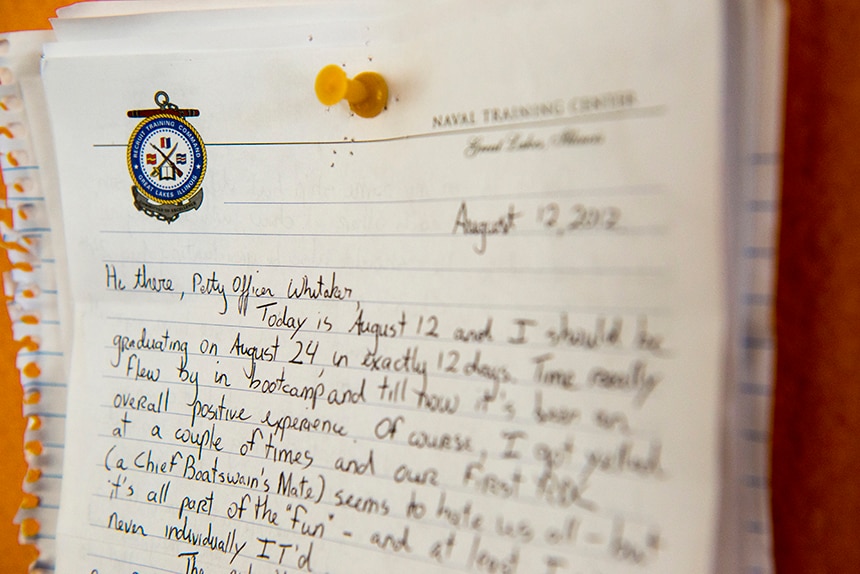 RECRUIT TRAINING COMMAND
GREAT LAKES ILLINOIS
NAVAL TRAINING CENTER
Great Lakes, Illinois
August 12, 2012
Hi there, Petty Officer Whitaker,
Today is August 12 and I should be
graduating on August 24, in exactly 12 days. Time really
flew by in bootcamp, and till now it's been an
overall positive experience. Of course, I got yelled
at a couple of times and our First RDC
(a Chief Boatswain's Mate) seems to hate us all - but
it's all part of the "fun" - and at least I
never individually IT'd
The